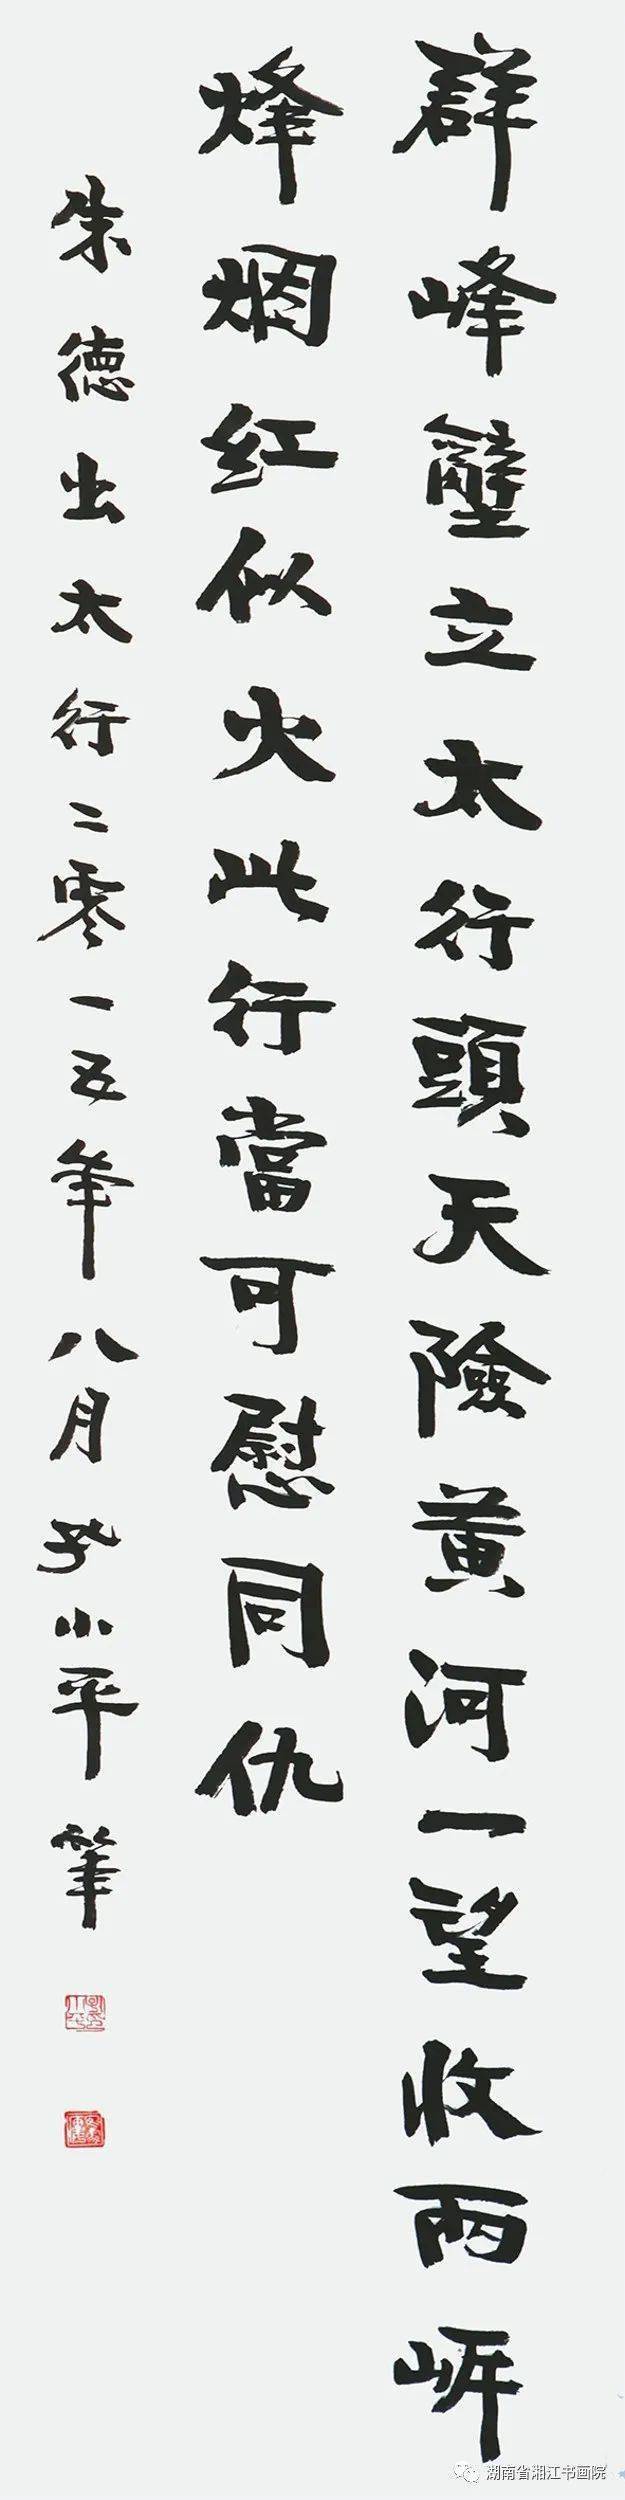 群峰壁立太行頭天險黄河一望收兩岸
烽烟紅似火此行當可慰同仇
朱德出太行二零一五年八月孔小平筆
湖南省湘江书画院